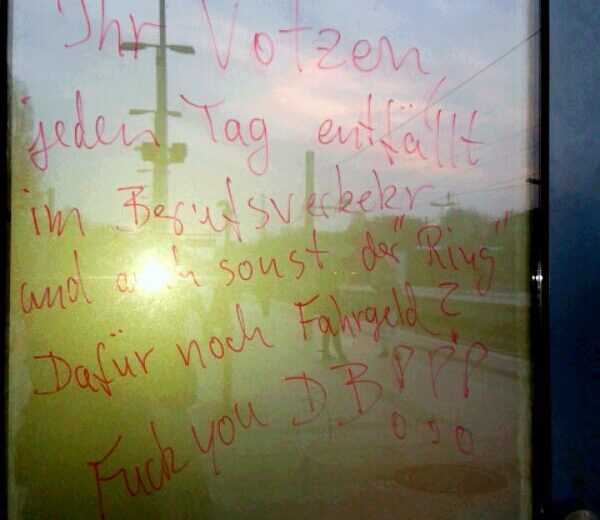 Ihr Votzen,
jeden Tag entfällt
im Berufsverkehr
und auch sonst der "Ring"
Dafür noch Fahrgeld?
Fuck you DB!!!